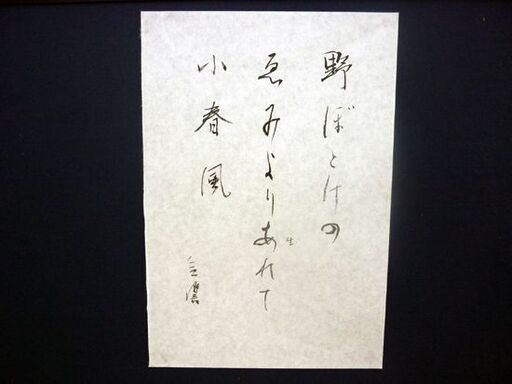 野ぼとけの
ゑみよりあれて
生
小春風